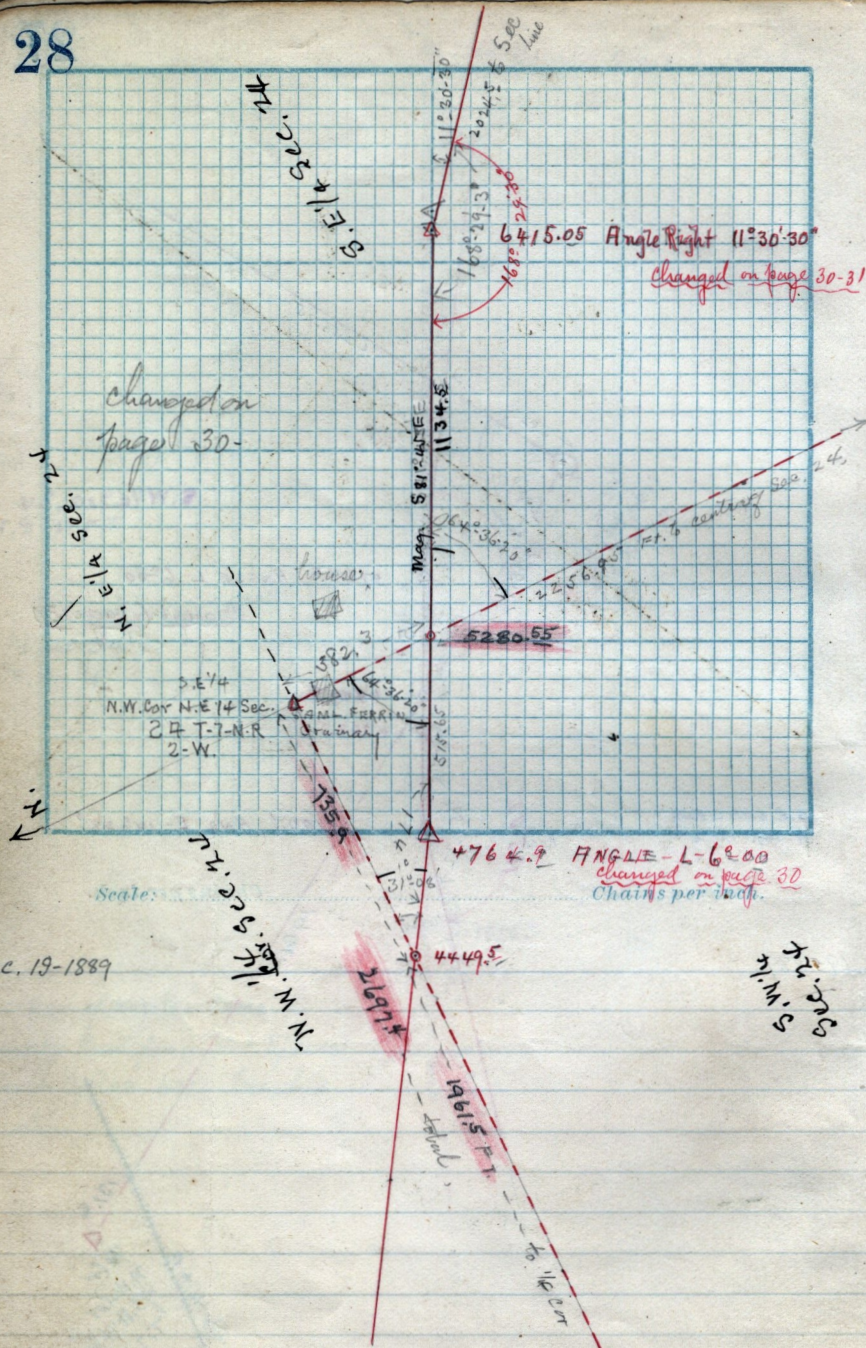 28
S.E 1/4 Sec. 24
11°-30'-30"
2024.5 to Sec
line
168°-29'-30"
168° 29'-30"
6415.05 Angle Right 11°-30'-30"
changed on page 30-31
changed on
page 30-
1134.5
N.E 1/4 Sec. 24
64°-36'-20"
2256.95 Ft. to center of Sec. 24
house
5280.55
382.3
64°-36'-20"
S.E 1/4
N.W. Cor N.E 1/4 Sec.
24 T-7-N.R
2-W.
N.
735.9
4764.9 ANGLE-L-6°-00
changed on page 30
31°-08
Scale: Chains per inch.
4449.5
c. 19-1889
N.W. 1/4 Cor. Sec. 24
S.W 1/4
Sec. 24
2697.4
1961.5 FT.
total
to 1/4 Cor